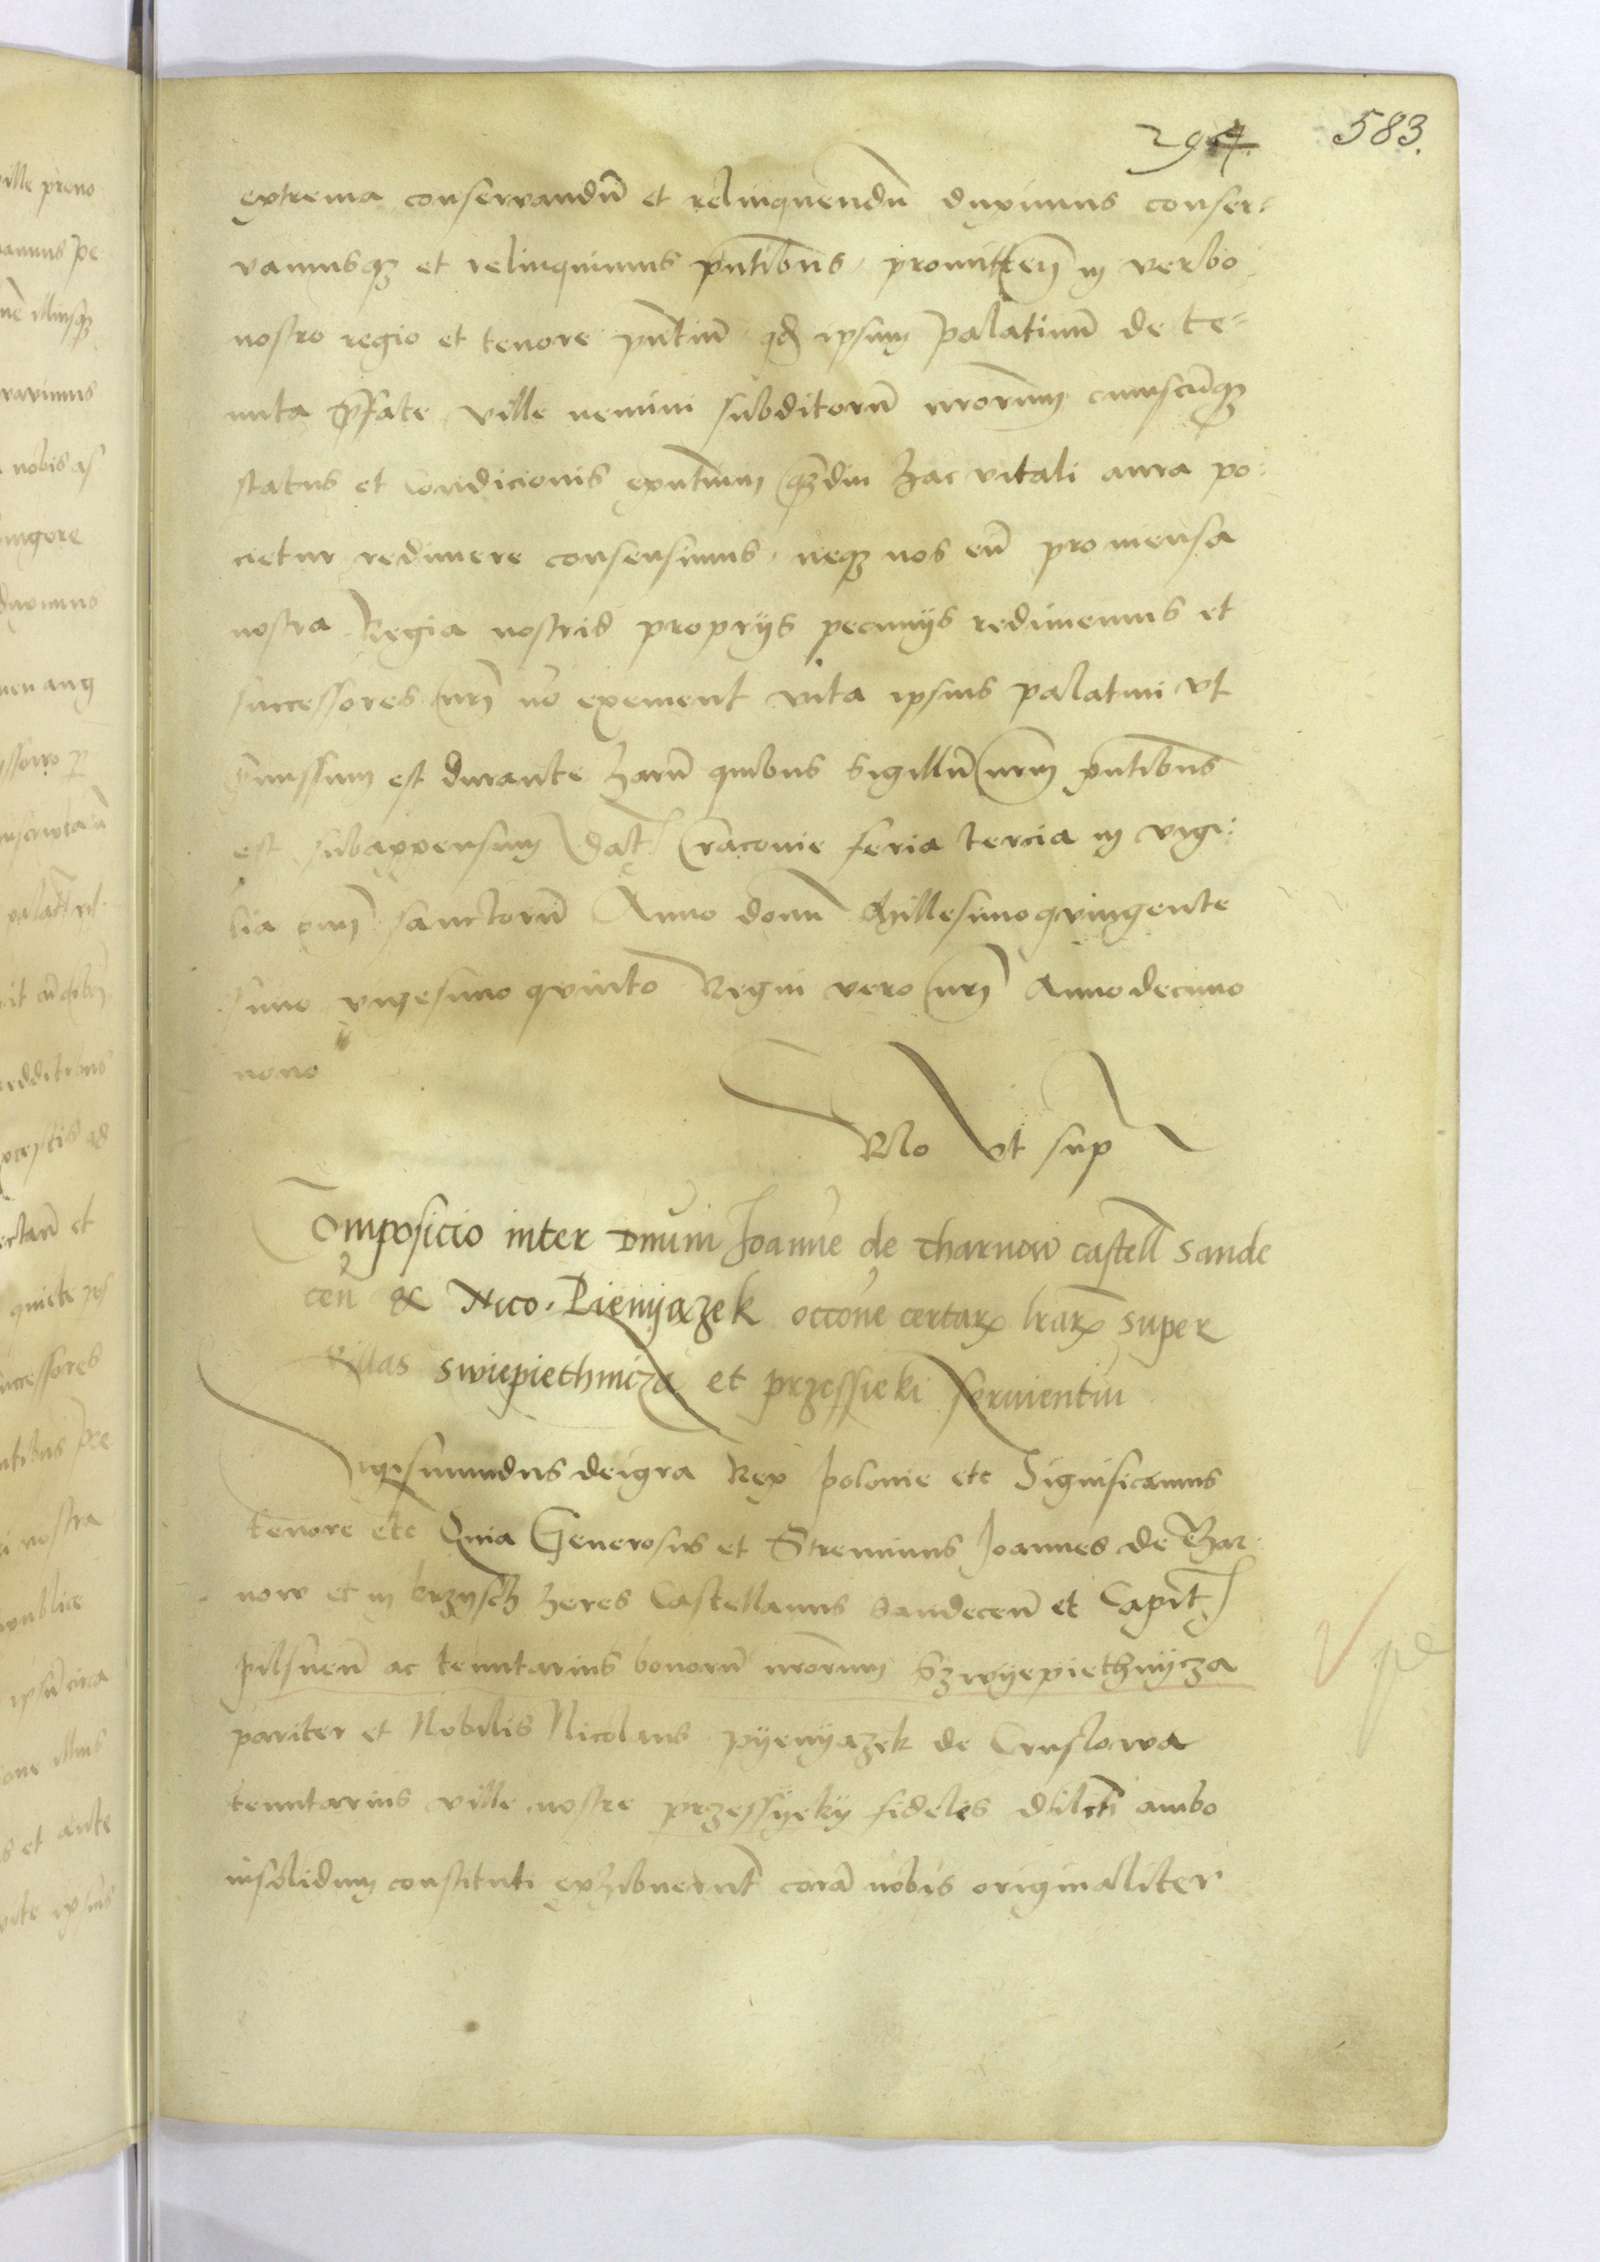 294. 583.
extrema conservandū et relinquendū duximus conser:
vamusqȝ et relinquimus pn̄tibus promitten̄ in verbo
nostro regio et tenore pn̄tium qd ipsum palatinū de te-
nuta p̄fate ville nemini subditorū nr̄orum cuiuscūqȝ
status et condicionis exn̄tium qȝdiu hac vitali aura po:
cietur redimere consensimus neqȝ nos eū pro mensa
nostra Regia nostris proprijs pecunijs redimemus et
successores nr̄i nō exement vita ipsius palatini vt
p̄missum est durante harū quibus Sigillū nr̄m pn̄tibus
est subappensum Dat̄ Cracovie feria tercia in vigi:
lia om̄ sanctorū Anno domī Millesimoquingente
simo vigesimo quinto Regni vero nr̄i Anno decimo
nono
Rlo vt sup
Composicio inter Dnum Joanne de Tharnow castell Sande
cen̄ & Nico. Pienyazek occōne certarꝝ lrarꝝ super
villas Swiepiethnicza et przessieki servientiū
Sigismundus dei gra Rex Polonie etc Significamus
tenore etc Quia Generosus et Strenuus Joannes de Thar
now et in krzysch heres Castellanus Sandecen̄ et Capit̄
pilsnen̄ ac tenutarius bonorū nr̄orum Szwyepiethnycza
pariter et Nobilis Nicolaus pyenyazek de Cruslowa
tenutarius ville nostre przessyeky fideles dilcti ambo
insolidum constituti exhibuerūt corā nobis originaliter